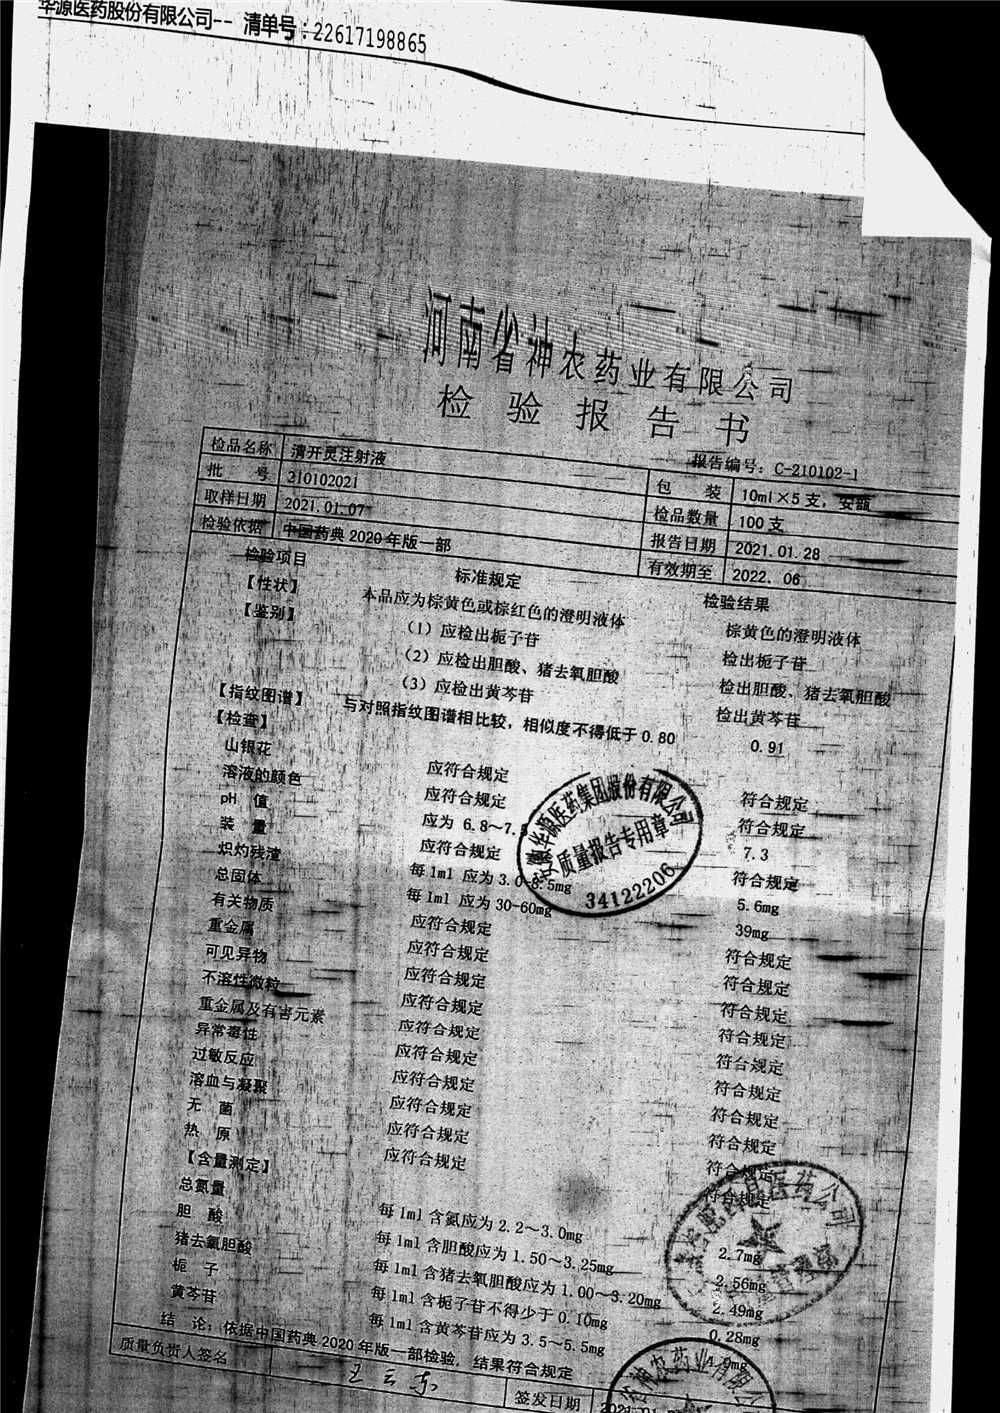 华源医药股份有限公司-- 清单号:22617198865
河南省神农药业有限公司
检验报告书
报告编号: C-210102-1
检品名称 清开灵注射液 包 装 10ml×5支, 安瓿
批 号 210102021 检品数量 100支
取样日期 2021.01.07 报告日期 2021.01.28
检验依据 中国药典2020年版一部 有效期至 2022.06
检验项目 标准规定 检验结果
【性状】 本品应为棕黄色或棕红色的澄明液体 棕黄色的澄明液体
【鉴别】 (1) 应检出栀子苷 检出栀子苷
(2) 应检出胆酸、猪去氧胆酸 检出胆酸、猪去氧胆酸
(3) 应检出黄芩苷 检出黄芩苷
【指纹图谱】 与对照指纹图谱相比较, 相似度不得低于0.80 0.91
【检查】
山银花 应符合规定 符合规定
溶液的颜色 应符合规定 符合规定
pH 值 应为 6.8~7. 7.3
装 量 应符合规定 符合规定
炽灼残渣 每1ml 应为3.0-8.5mg 5.6mg
总固体 每1ml 应为30-60mg 39mg
有关物质 应符合规定 符合规定
重金属 应符合规定 符合规定
可见异物 应符合规定 符合规定
不溶性微粒 应符合规定 符合规定
重金属及有害元素 应符合规定 符合规定
异常毒性 应符合规定 符合规定
过敏反应 应符合规定 符合规定
溶血与凝聚 应符合规定 符合规定
无 菌 应符合规定 符合规定
热 原 应符合规定 符合规定
【含量测定】
总氮量 每1ml含氮应为2.2~3.0mg 2.7mg
胆 酸 每1ml含胆酸应为1.50~3.25mg 2.56mg
猪去氧胆酸 每1ml含猪去氧胆酸应为1.00~3.20mg 2.49mg
栀 子 每1ml含栀子苷不得少于0.10mg 0.28mg
黄芩苷 每1ml含黄芩苷应为3.5~5.5mg
结 论: 依据中国药典2020年版一部检验, 结果符合规定
质量负责人签名 签发日期
安徽华源医药集团股份有限公司
质量报告专用章
34122206
神农药业有限公